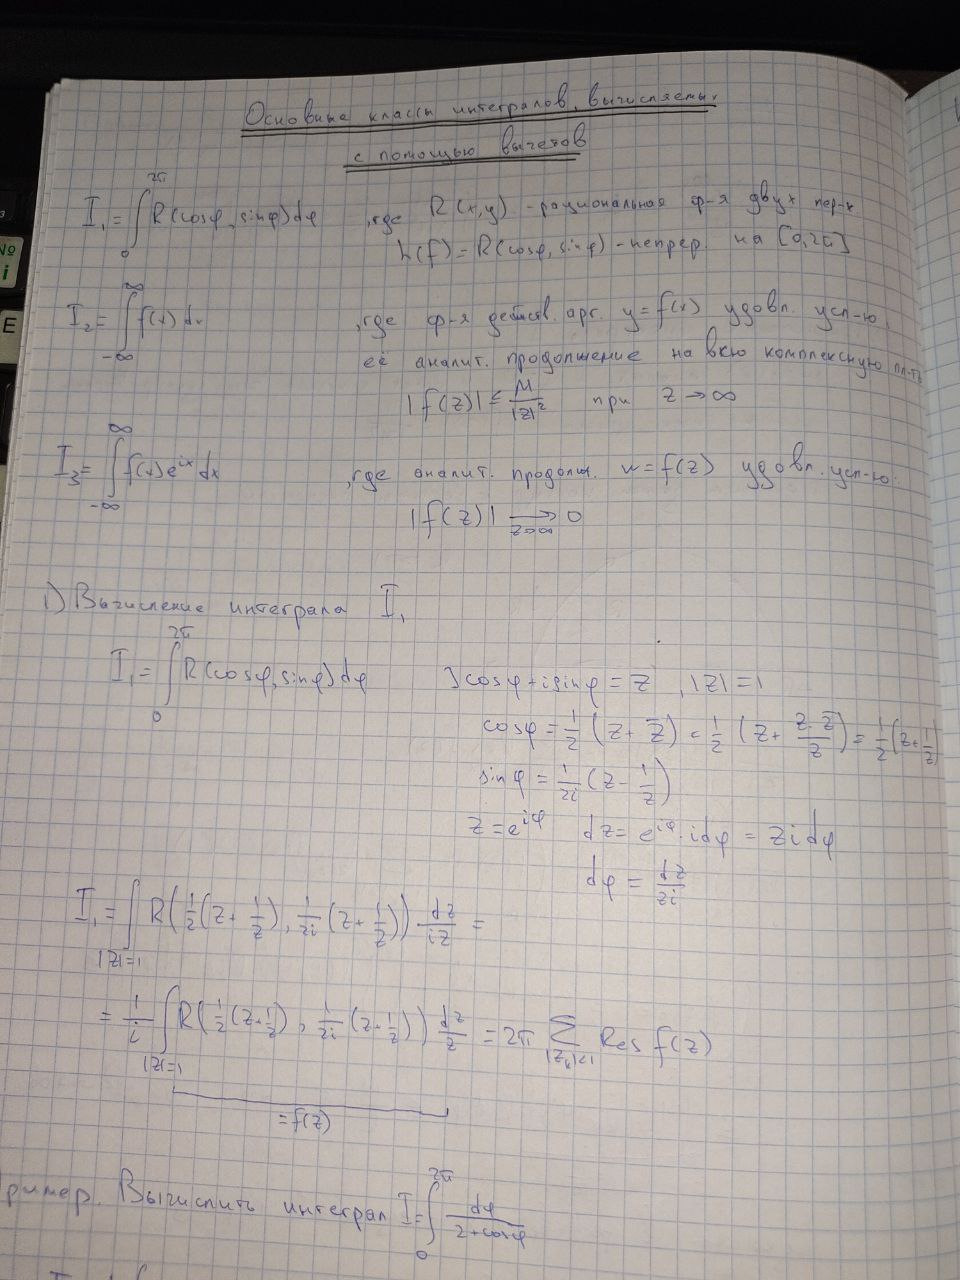 Основные классы интегралов, вычисляемых
с помощью вычетов
I₁ = ∫₀^{2π} R(cosφ, sinφ)dφ , где R(x,y) - рациональная ф-я двух пер-х
h(f) = R(cosφ, sinφ) - непрер. на [0,2π]
I₂ = ∫_{-∞}^{∞} f(x)dx , где ф-я действ. арг. y=f(x) удовл. усл-ю,
её аналит. продолжение на всю комплексную пл-ть
|f(z)| ≤ M/|z|² при z→∞
I₃ = ∫_{-∞}^{∞} f(x)e^{ix}dx , где аналит. продолж. w=f(z) удовл. усл-ю:
|f(z)| →_{z→∞} 0
1) Вычисление интеграла I₁
I₁ = ∫₀^{2π} R(cosφ, sinφ)dφ ] cosφ + isinφ = z , |z|=1
cosφ = 1/2 (z + z̄) = 1/2 (z + z·z̄/z) = 1/2 (z + 1/z)
sinφ = 1/2i (z - 1/z)
z = e^{iφ} dz = e^{iφ}·idφ = zidφ
dφ = dz/zi
I₁ = ∫_{|z|=1} R(1/2(z + 1/z), 1/2i(z + 1/z)) dz/iz =
= 1/i ∫_{|z|=1} R(1/2(z+1/z), 1/2i(z-1/z)) dz/z = 2π Σ_{|z_k|<1} Res f(z)
= f(z)
ример. Вычислить интеграл I = ∫₀^{2π} dφ/(2+cosφ)